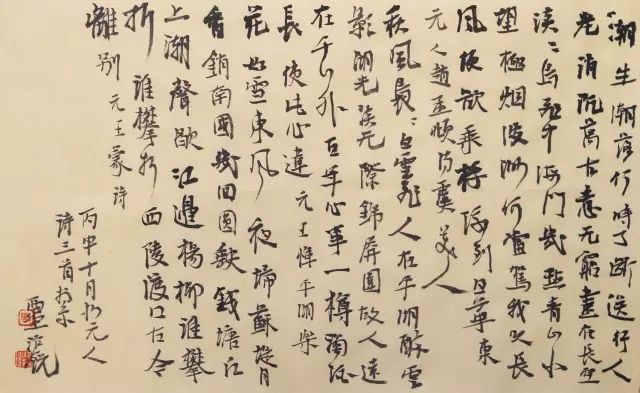 潮生潮落何時了斷送行人
老消沉萬古意无窮盡在長空
淡淡鳥飛中海門幾點青山小
望極烟波渺何當駕我以長
風便欲乘桴浮到日華東
元人趙孟頫詩虞美人
秋風裊裊白雲飛人在平湖醉雲
影湖光淡无際錦屏圍故人遠
在千山外百年心事一樽濁酒
長使此心違 元王惲平湖樂
花如雪東風夜掃蘇堤月
香銷南國幾回圓缺錢塘江
上潮聲歇江邊楊柳誰攀
折誰攀折西陵渡口古今
離別 元王蒙詩
丙申十月抄元人
詩三首於京